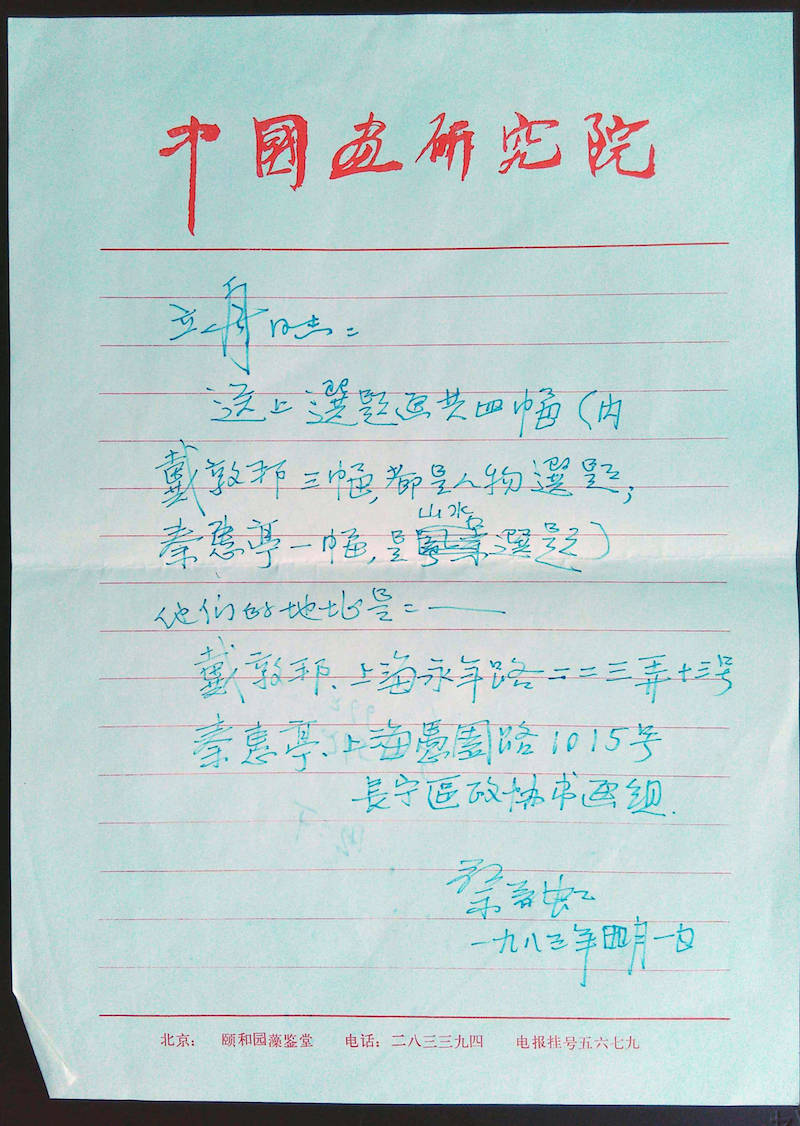 中國画研究院
立身同志：
送上選題画共四幅（内
戴敦邦三幅，都是人物選題；
秦惠亭一幅，是山水選題）
他们的地址是：——
戴敦邦、上海永年路二二三弄十三号
秦惠亭、上海愚園路1015号
長宁區政协书画组.
一九八三年四月一日
北京： 颐和园藻鉴堂 电话：二八三三九四 电报挂号五六七九